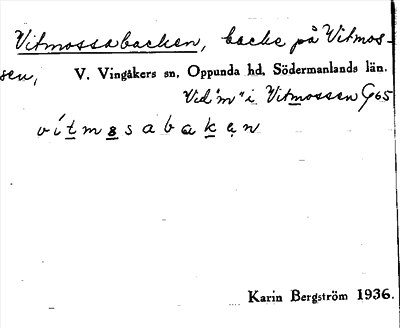 Vitmossabacken, backe på Vitmos-
sen, V. Vingåkers sn, Oppunda hd, Södermanlands län.
Vid "m" i Vitmossen G65
vítmsabakən
Karin Bergström 1936.